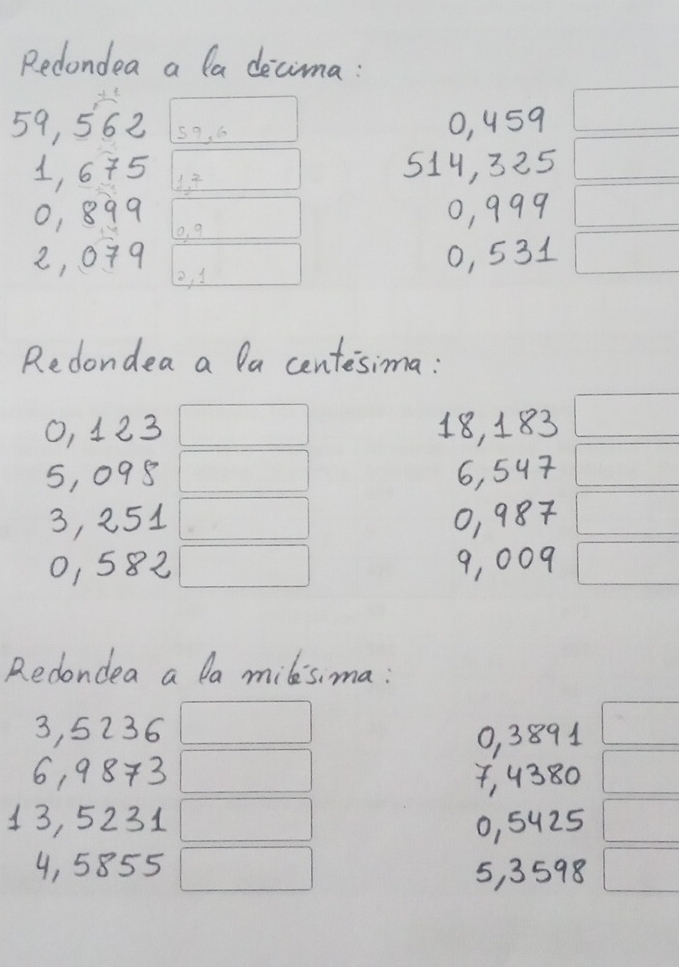 Redondea a la décima:
59,562 59,6 0,459
1,675 1,7 514,325
0,899 0,9 0,999
2,079 2,1 0,531
Redondea a la centésima:
0,123 18,183
5,098 6,547
3,251 0,987
0,582 9,009
Redondea a la milésima:
3,5236 0,3891
6,9873 7,4380
13,5231 0,5425
4,5855 5,3598